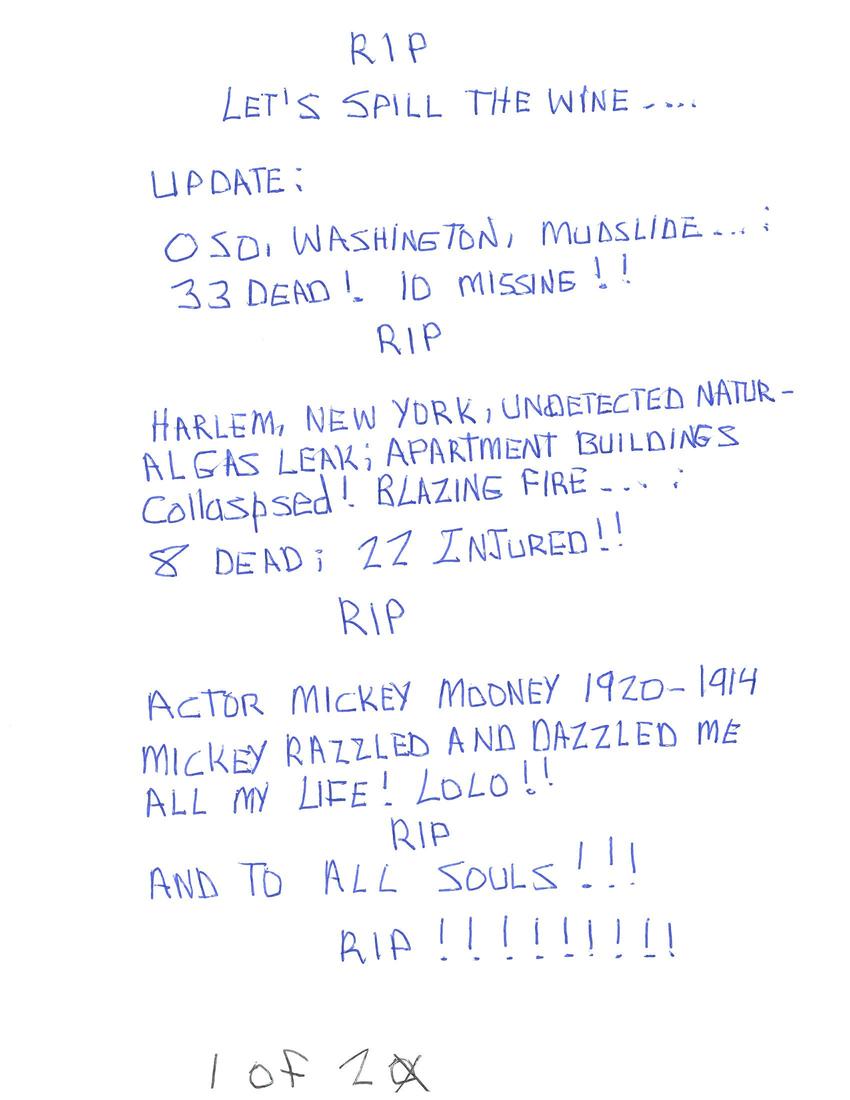 RIP
LET'S SPILL THE WINE ....
UPDATE;
OSO, WASHINGTON, MUDSLIDE... ;
33 DEAD! 10 MISSING!!
RIP
HARLEM, NEW YORK, UNDETECTED NATUR-
AL GAS LEAK; APARTMENT BUILDINGS
Collaspsed! BLAZING FIRE .... ;
8 DEAD; 22 INJURED!!
RIP
ACTOR MICKEY MOONEY 1920-1914
MICKEY RAZZLED AND DAZZLED ME
ALL MY LIFE! LOLO!!
RIP
AND TO ALL SOULS!!!
RIP !!!!!!!!!
1 of 2